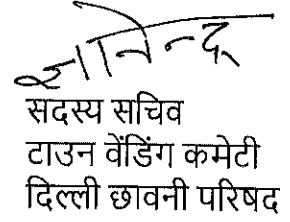 ज्ञानेन्द्र
सदस्य सचिव
टाउन वेंडिंग कमेटी
दिल्ली छावनी परिषद